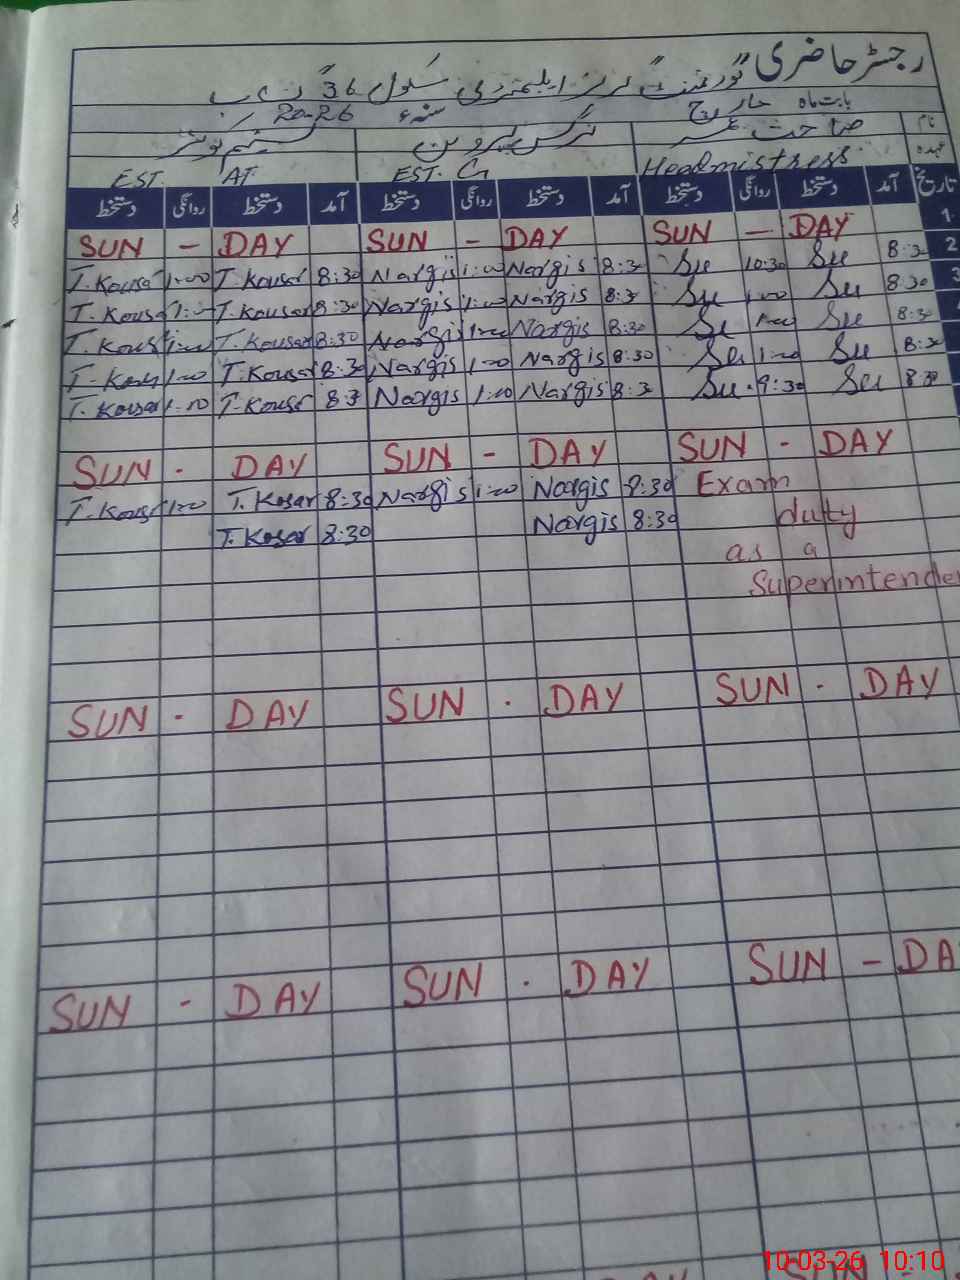 رجسٹر حاضری
گورنمنٹ گرلز ایلیمنٹری سکول 36 گ ب
بابت ماہ مارچ سنہء 2026
نام نرگس پروین
عہدہ Headmistress EST. G EST. AT
تاریخ آمد دستخط روانگی دستخط آمد دستخط روانگی دستخط آمد دستخط روانگی دستخط
1 SUN - DAY SUN - DAY SUN - DAY
2 8:30 10:30 8:30 Nargis 1:00 Nargis 8:30 T. Kousar 1:00 T. Kousa
3 8:30 1:00 8:3 Nargis 1:00 Nargis 8:30 T. Kousar 1:00 T. Kousa
8:30 1:00 8:30 Nargis 1:00 Nargis 8:30 T. Kousar 1:00 T. Kous
8:30 1:00 8:30 Nargis 1:00 Nargis 8:30 T. Kousar 1:00
8:30 9:30 8:3 Nargis 1:00 Nargis 8:3 T. Kousr 1:00 T. Kousar
SUN - DAY SUN - DAY SUN - DAY
Exam 8:30 Nargis 1:00 Nargis 8:30 T. Kosar 1:00 T. Kousr
duty 8:30 Nargis 8:30 T. Kosar
as a
Superintenden
SUN - DAY SUN - DAY SUN - DAY
SUN - DA SUN - DAY SUN - DAY
SUN DAY
10-03-26 10:10